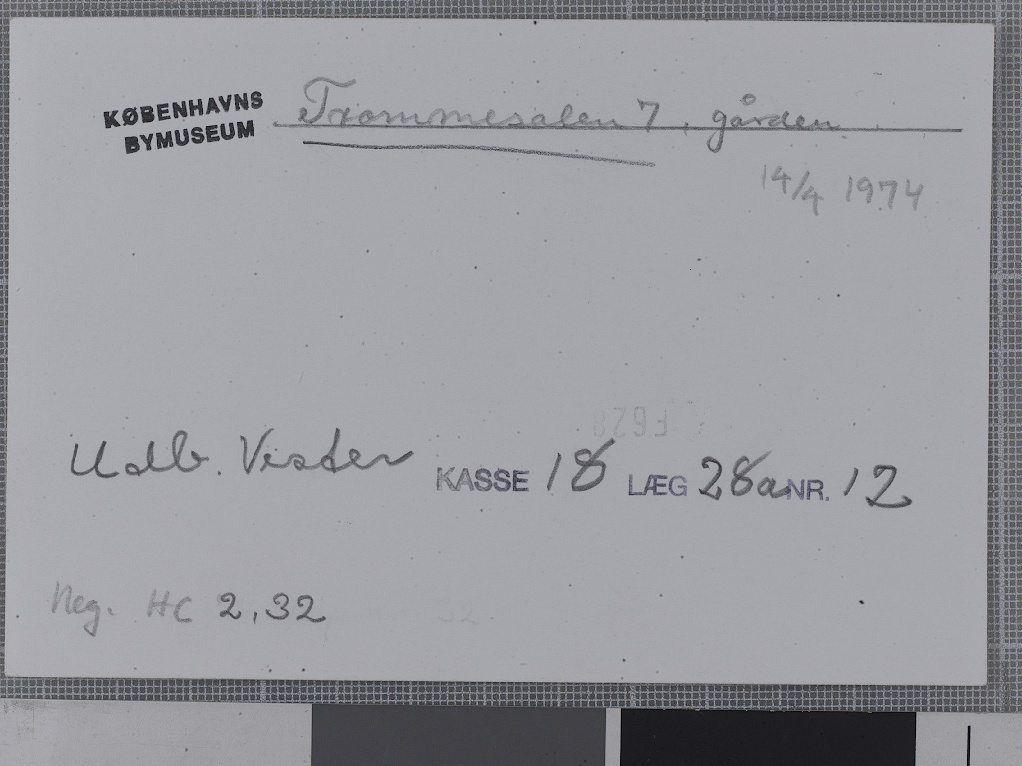 KØBENHAVNS
BYMUSEUM
Trommesalen 7, gården
14/4 1974
Udb. Vester KASSE 18 LÆG 28a NR. 12
Neg. HC 2,32